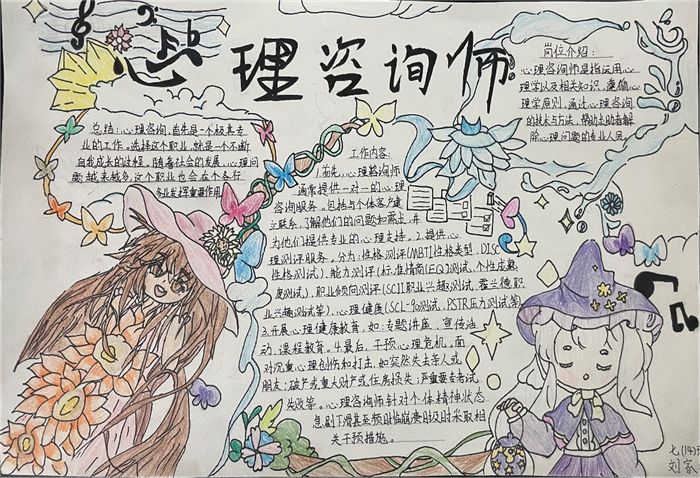 心理咨询师
岗位介绍：
心理咨询师是指运用心
理学以及相关知识，遵循心
理学原则，通过心理咨询
的技术与方法，帮助求助者解
除心理问题的专业人员
总结：心理咨询，首先是一个极具专
业的工作。选择这个职业，就是一个不断
自我成长的过程。随着社会的发展，心理问
题越来越多，这个职业也会在个各行
各业发挥重要作用
工作内容：
1.首先，心理咨询师
通常提供一对一的心理
咨询服务。包括与个体客户建
立联系，了解他们的问题和需求，并
为他们提供专业的心理支持。2.提供心
理测评服务。分为：性格测评(MBTI性格类型，DISC
性格测试)、能力测评(标准情商(EQ)测试，个性成熟
度测试)、职业倾向测评(SCII职业兴趣测试，霍兰德职
业兴趣测试等)、心理健康(SCL-90测试，PSTR压力测试等)
3.开展心理健康教育，如：专题讲座、宣传活
动，课程教育。4.最后，干预心理危机。面
对沉重心理创伤和打击，如突然失去亲人或
朋友；破产或重大财产或住房损失；严重要考考试
失败等。心理咨询师针对个体精神状态
急剧下滑甚至频临崩溃时及时采取相
关干预措施。
七(14)班
刘家